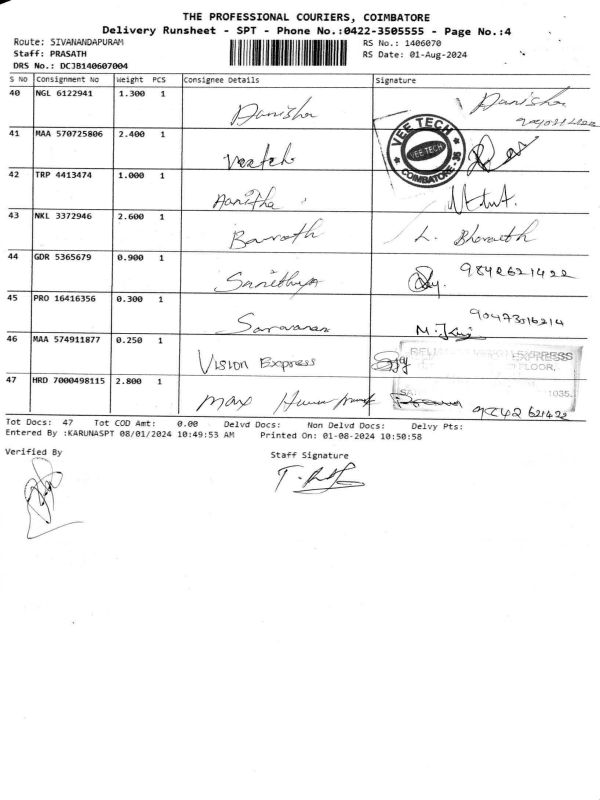 THE PROFESSIONAL COURIERS, COIMBATORE
Delivery Runsheet - SPT - Phone No.:0422-3505555 - Page No.:4
Route: SIVANANDAPURAM RS No.: 1406070
Staff: PRASATH RS Date: 01-Aug-2024
DRS No.: DCJB140607004
S No Consignment No Weight PCS Consignee Details Signature
40 NGL 6122941 1.300 1 Danisha Danisha
41 MAA 570725806 2.400 1 VEE TECH
VEE TECH
COIMBATORE - 35
42 TRP 4413474 1.000 1
43 NKL 3372946 2.600 1 L. Bharath
44 GDR 5365679 0.900 1 9842621422
45 PRO 16416356 0.300 1 Saravanan
46 MAA 574911877 0.250 1 Vision Express
EXPRESS
FLOOR,
1035.
47 HRD 7000498115 2.800 1 Max
Tot Docs: 47 Tot COD Amt: 0.00 Delvd Docs: Non Delvd Docs: Delvy Pts:
Entered By :KARUNASPT 08/01/2024 10:49:53 AM Printed On: 01-08-2024 10:50:58
Verified By Staff Signature